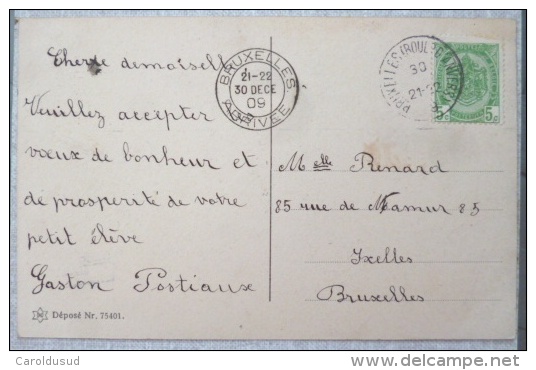 Cherre demoiselle
Veuillez accépter
vœux de bonheur et
de prosperité de votre
petit élève
Gaston Postiaux
Déposé Nr. 75401.
BRUXELLES
21-22
30 DECE
09
ARRIVEE
30
21-22
5c 5c
Melle Renard
85 rue de Namur 85
Ixelles
Bruxelles
Caroldusud
delcampe.net